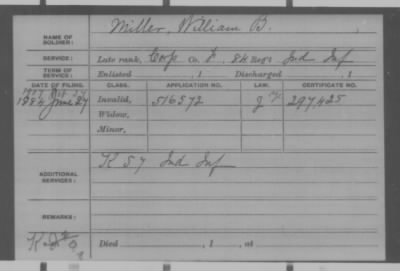 NAME OF SOLDIER: Miller, William B.
SERVICE: Late rank, Corp Co. F, 84 Reg't Ind Inf
TERM OF SERVICE: Enlisted , 1 Discharged , 1
DATE OF FILING. CLASS. APPLICATION NO. LAW. CERTIFICATE NO.
1917 Oct
1884 June 27 Invalid, 516572 297,425
Widow,
Minor,
ADDITIONAL SERVICES: K 57 Ind Inf
REMARKS:
Died , 1 , at